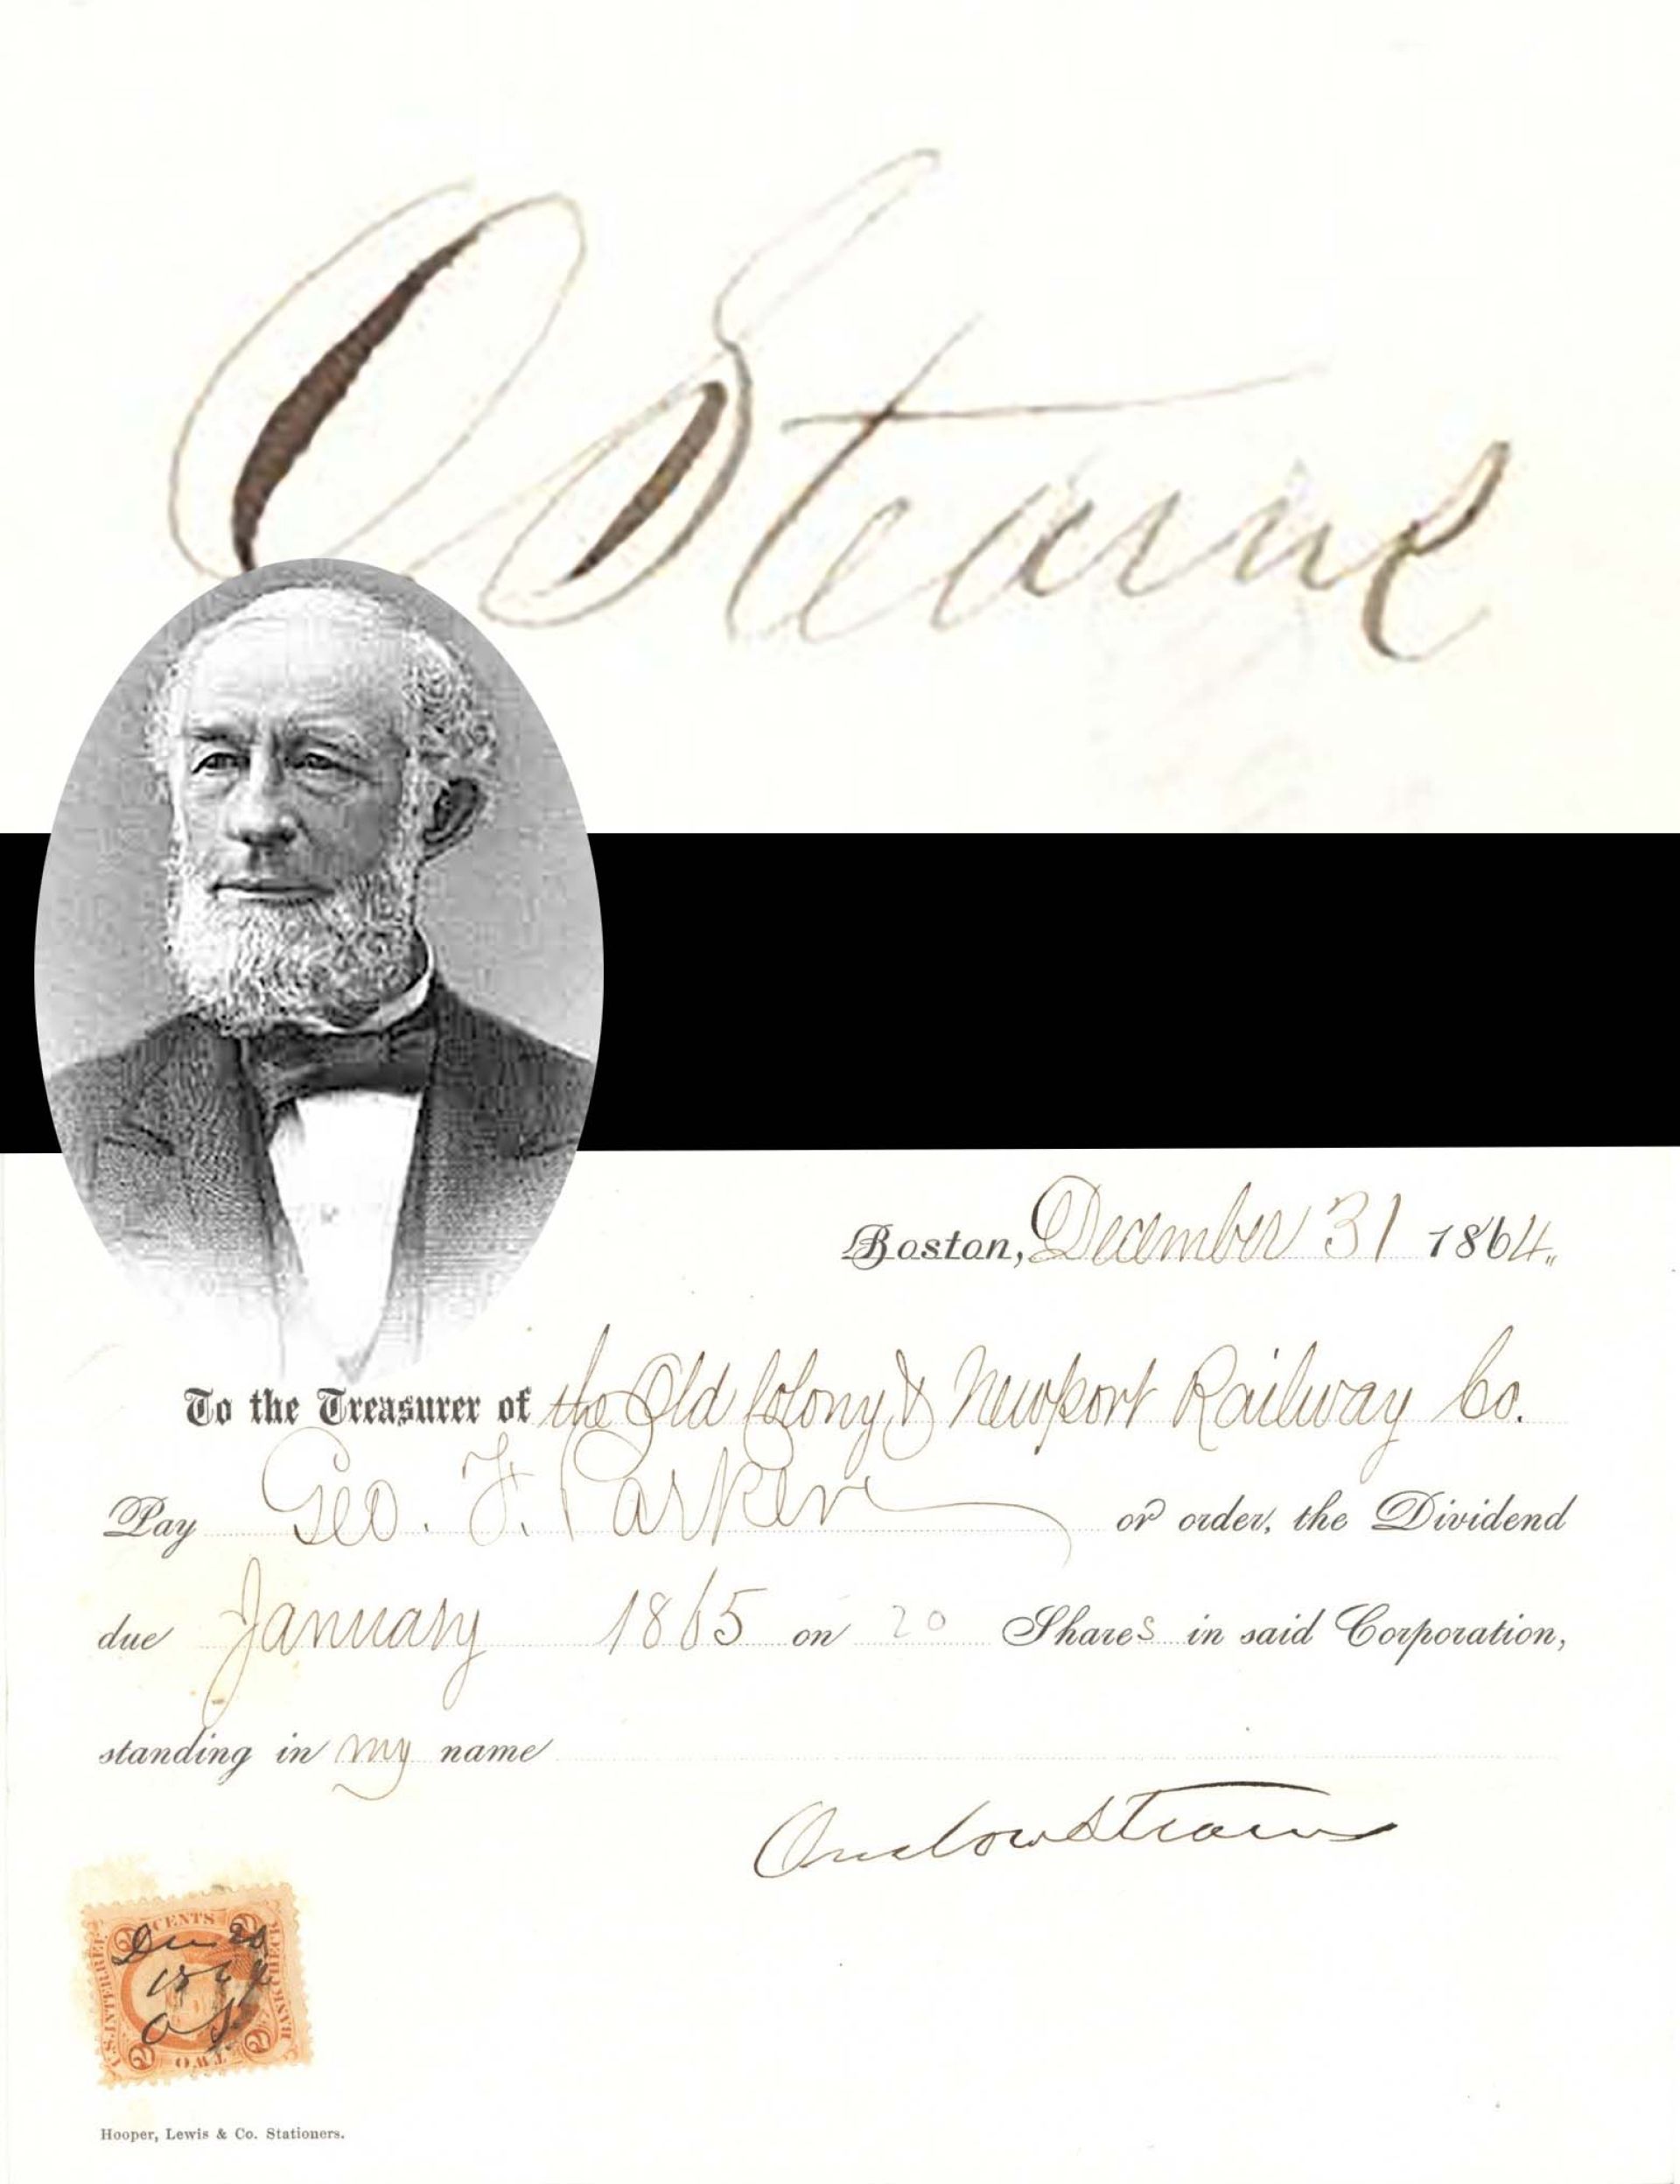 O Stearns
Boston, December 31 1864.
To the Treasurer of the Old Colony & Newport Railway Co.
Pay Geo. F. Parker or order, the Dividend
due January 1865 on 20 Shares in said Corporation,
standing in my name
Onslow Stearns
2 CENTS 2
U.S. INTER. REV.
BANK CHECK
Dec 20
1864
O.S.
2 TWO 2
Hooper, Lewis & Co. Stationers.